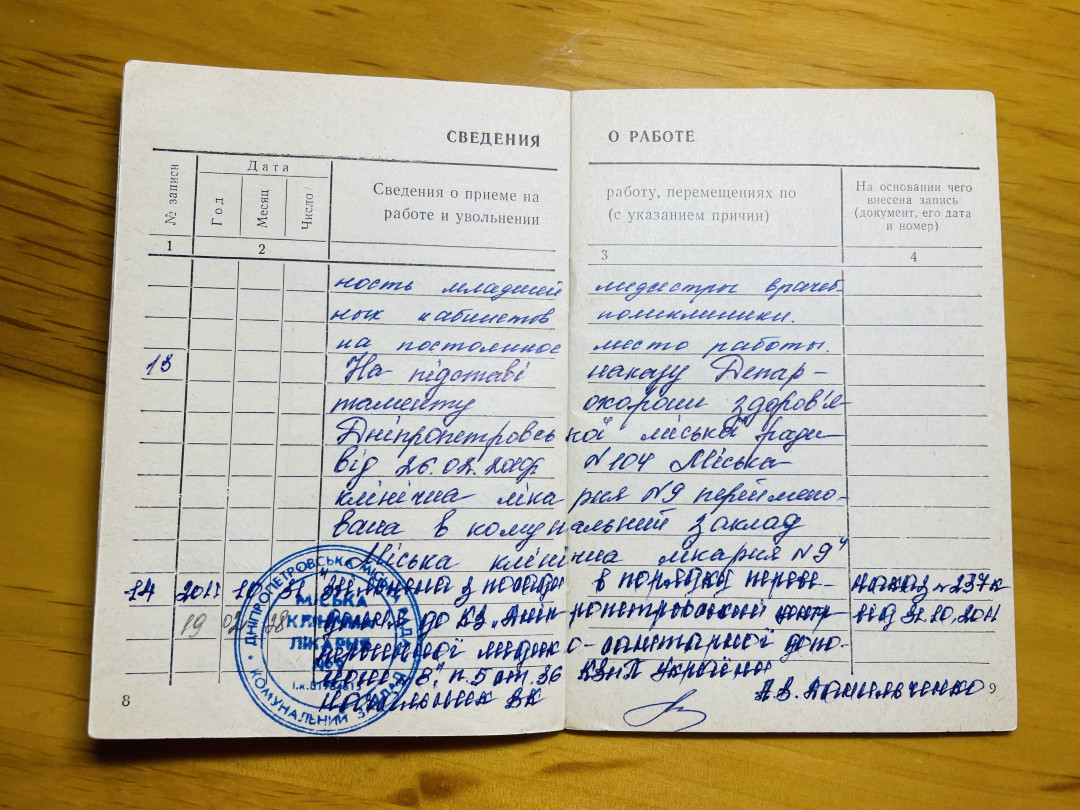 СВЕДЕНИЯ О РАБОТЕ
№ записи
Дата
Год
Месяц
Число
Сведения о приеме на работу, перемещениях по
работе и увольнении (с указанием причин)
На основании чего
внесена запись
(документ, его дата
и номер)
1 2 3 4
ность младшей медсестры врачеб-
ных кабинетов поликлиники.
на постоянное место работы.
13 На підставі наказу Депар-
таменту охорони здоров'я
Дніпропетровської міської ради
від 26.02. N104 Міська
клінічна лікарня N9 переймено-
вана в комунальний заклад
"Міська клінічна лікарня N9"
14 2011 10 31 Звільнена з посади в порядку переве- наказ N 237к
19 02 28 до КЗ "Дніпропетровський центр від 31.10.2011
первинної медико-санітарної допо-
моги 8" п.5 ст.36 КЗпП України
Начальник ВК
8 9
ДНІПРОПЕТРОВСЬКА МІСЬКА РАДА
КОМУНАЛЬНИЙ ЗАКЛАД
МІСЬКА
КЛІНІЧНА
ЛІКАРНЯ
№9